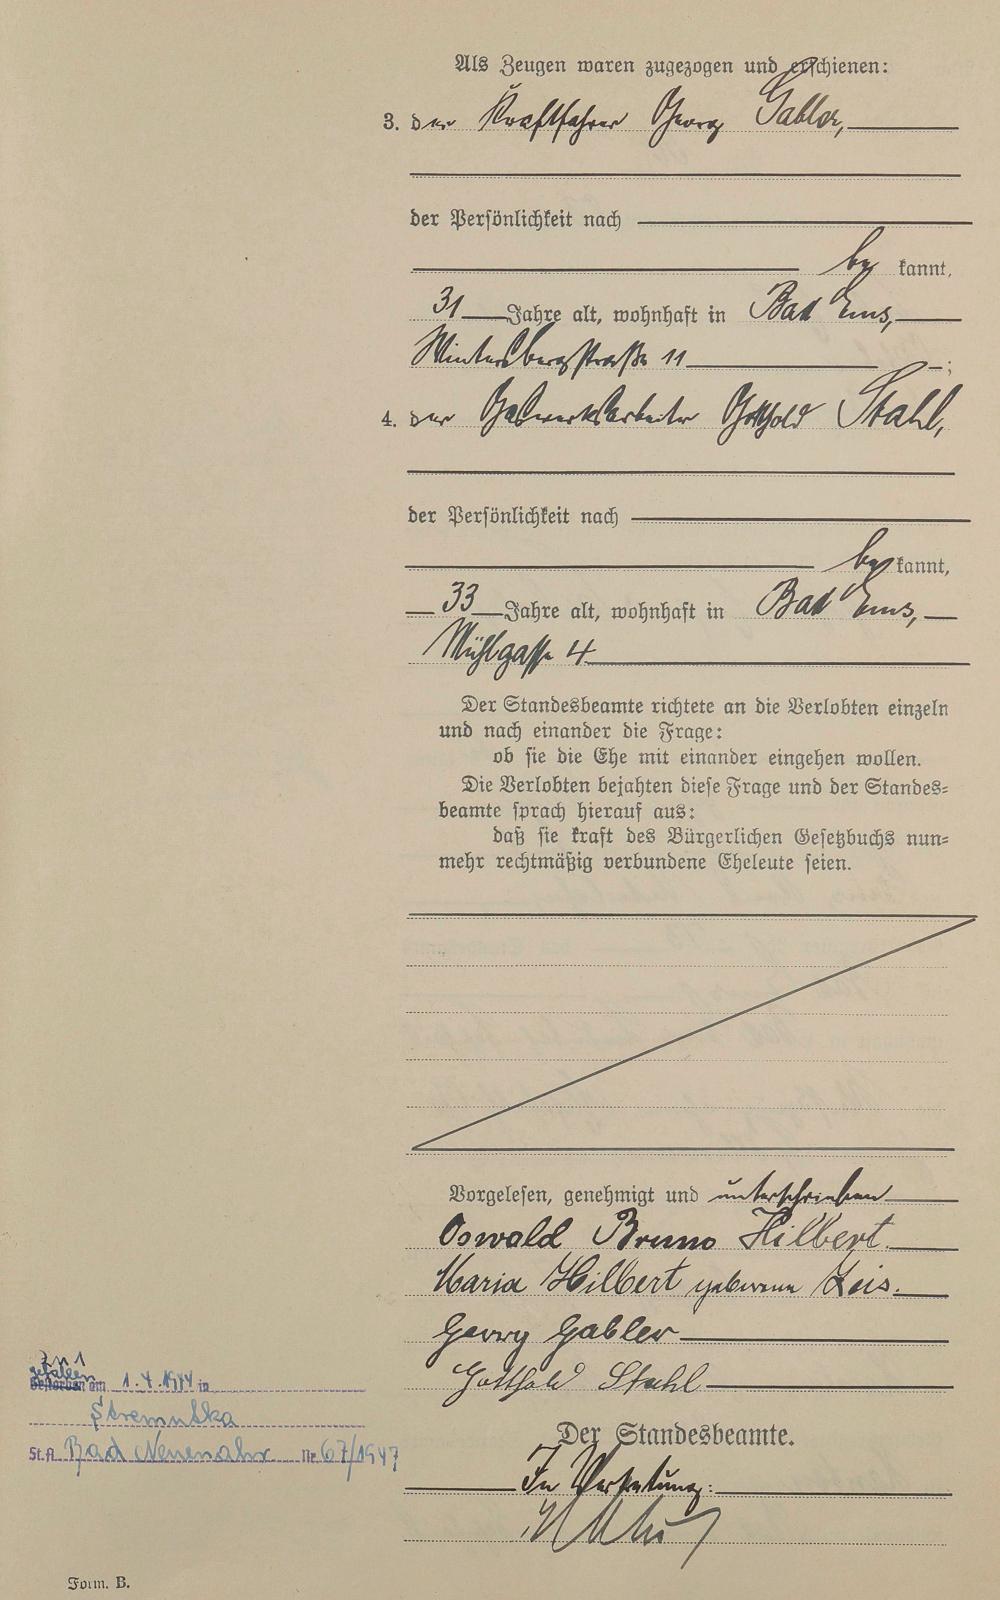 Als Zeugen waren zugezogen und erschienen:
3. der Kraftfahrer Georg Gabler,
der Persönlichkeit nach
be kannt,
31 Jahre alt, wohnhaft in Bad Ems,
Wintersbergstraße 11 ;
4. der Gaswerksarbeiter Gotthold Stahl,
der Persönlichkeit nach
be kannt,
33 Jahre alt, wohnhaft in Bad Ems,
Mühlgasse 4
Der Standesbeamte richtete an die Verlobten einzeln
und nach einander die Frage:
ob sie die Ehe mit einander eingehen wollen.
Die Verlobten bejahten diese Frage und der Standes-
beamte sprach hierauf aus:
daß sie kraft des Bürgerlichen Gesetzbuchs nun-
mehr rechtmäßig verbundene Eheleute seien.
Vorgelesen, genehmigt und unterschrieben
Oswald Bruno Hilbert.
Maria Hilbert geborene Leis.
Georg Gabler
Gotthold Stahl
Der Standesbeamte.
In Vertretung:
Zu 1
gefallen
Gestorben am 1.4.1944 in
Stremutka
St.A. Bad Neuenahr Nr. 67/1947
Form. B.